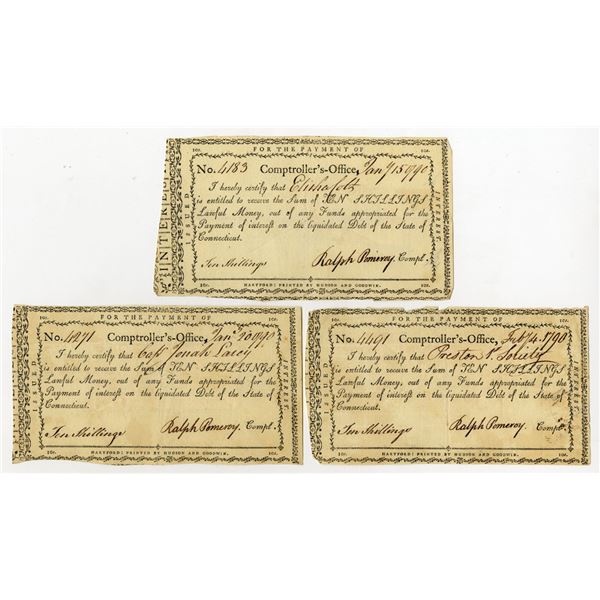 10s. FOR THE PAYMENT OF 10s.
No. 4183 Comptroller's-Office, Jany 15 1790
I hereby certify that Elisha Colt
is entitled to receive the Sum of TEN SHILLINGS
Lawful Money, out of any Funds appropriated for the
Payment of interest on the liquidated Debt of the State of
Connecticut.
Ten Shillings Ralph Pomeroy. Compt.
10s. HARTFORD: PRINTED BY HUDSON AND GOODWIN. 10s.
ISSUED
INTEREST.
10s. FOR THE PAYMENT OF 10s.
No. 4271 Comptroller's-Office, Jany 20 1790
I hereby certify that Capt Jonah
is entitled to receive the Sum of TEN SHILLINGS
Lawful Money, out of any Funds appropriated for the
Payment of interest on the liquidated Debt of the State of
Connecticut.
Ten Shillings Ralph Pomeroy. Compt.
10s. HARTFORD: PRINTED BY HUDSON AND GOODWIN. 10s.
ISSUED
INTEREST.
10s. FOR THE PAYMENT OF 10s.
No. 4491 Comptroller's-Office, Feby 4. 1790
I hereby certify that Preston Society
is entitled to receive the Sum of TEN SHILLINGS
Lawful Money, out of any Funds appropriated for the
Payment of interest on the liquidated Debt of the State of
Connecticut.
Ten Shillings Ralph Pomeroy. Compt.
10s. HARTFORD: PRINTED BY HUDSON AND GOODWIN. 10s.
ISSUED
INTEREST.